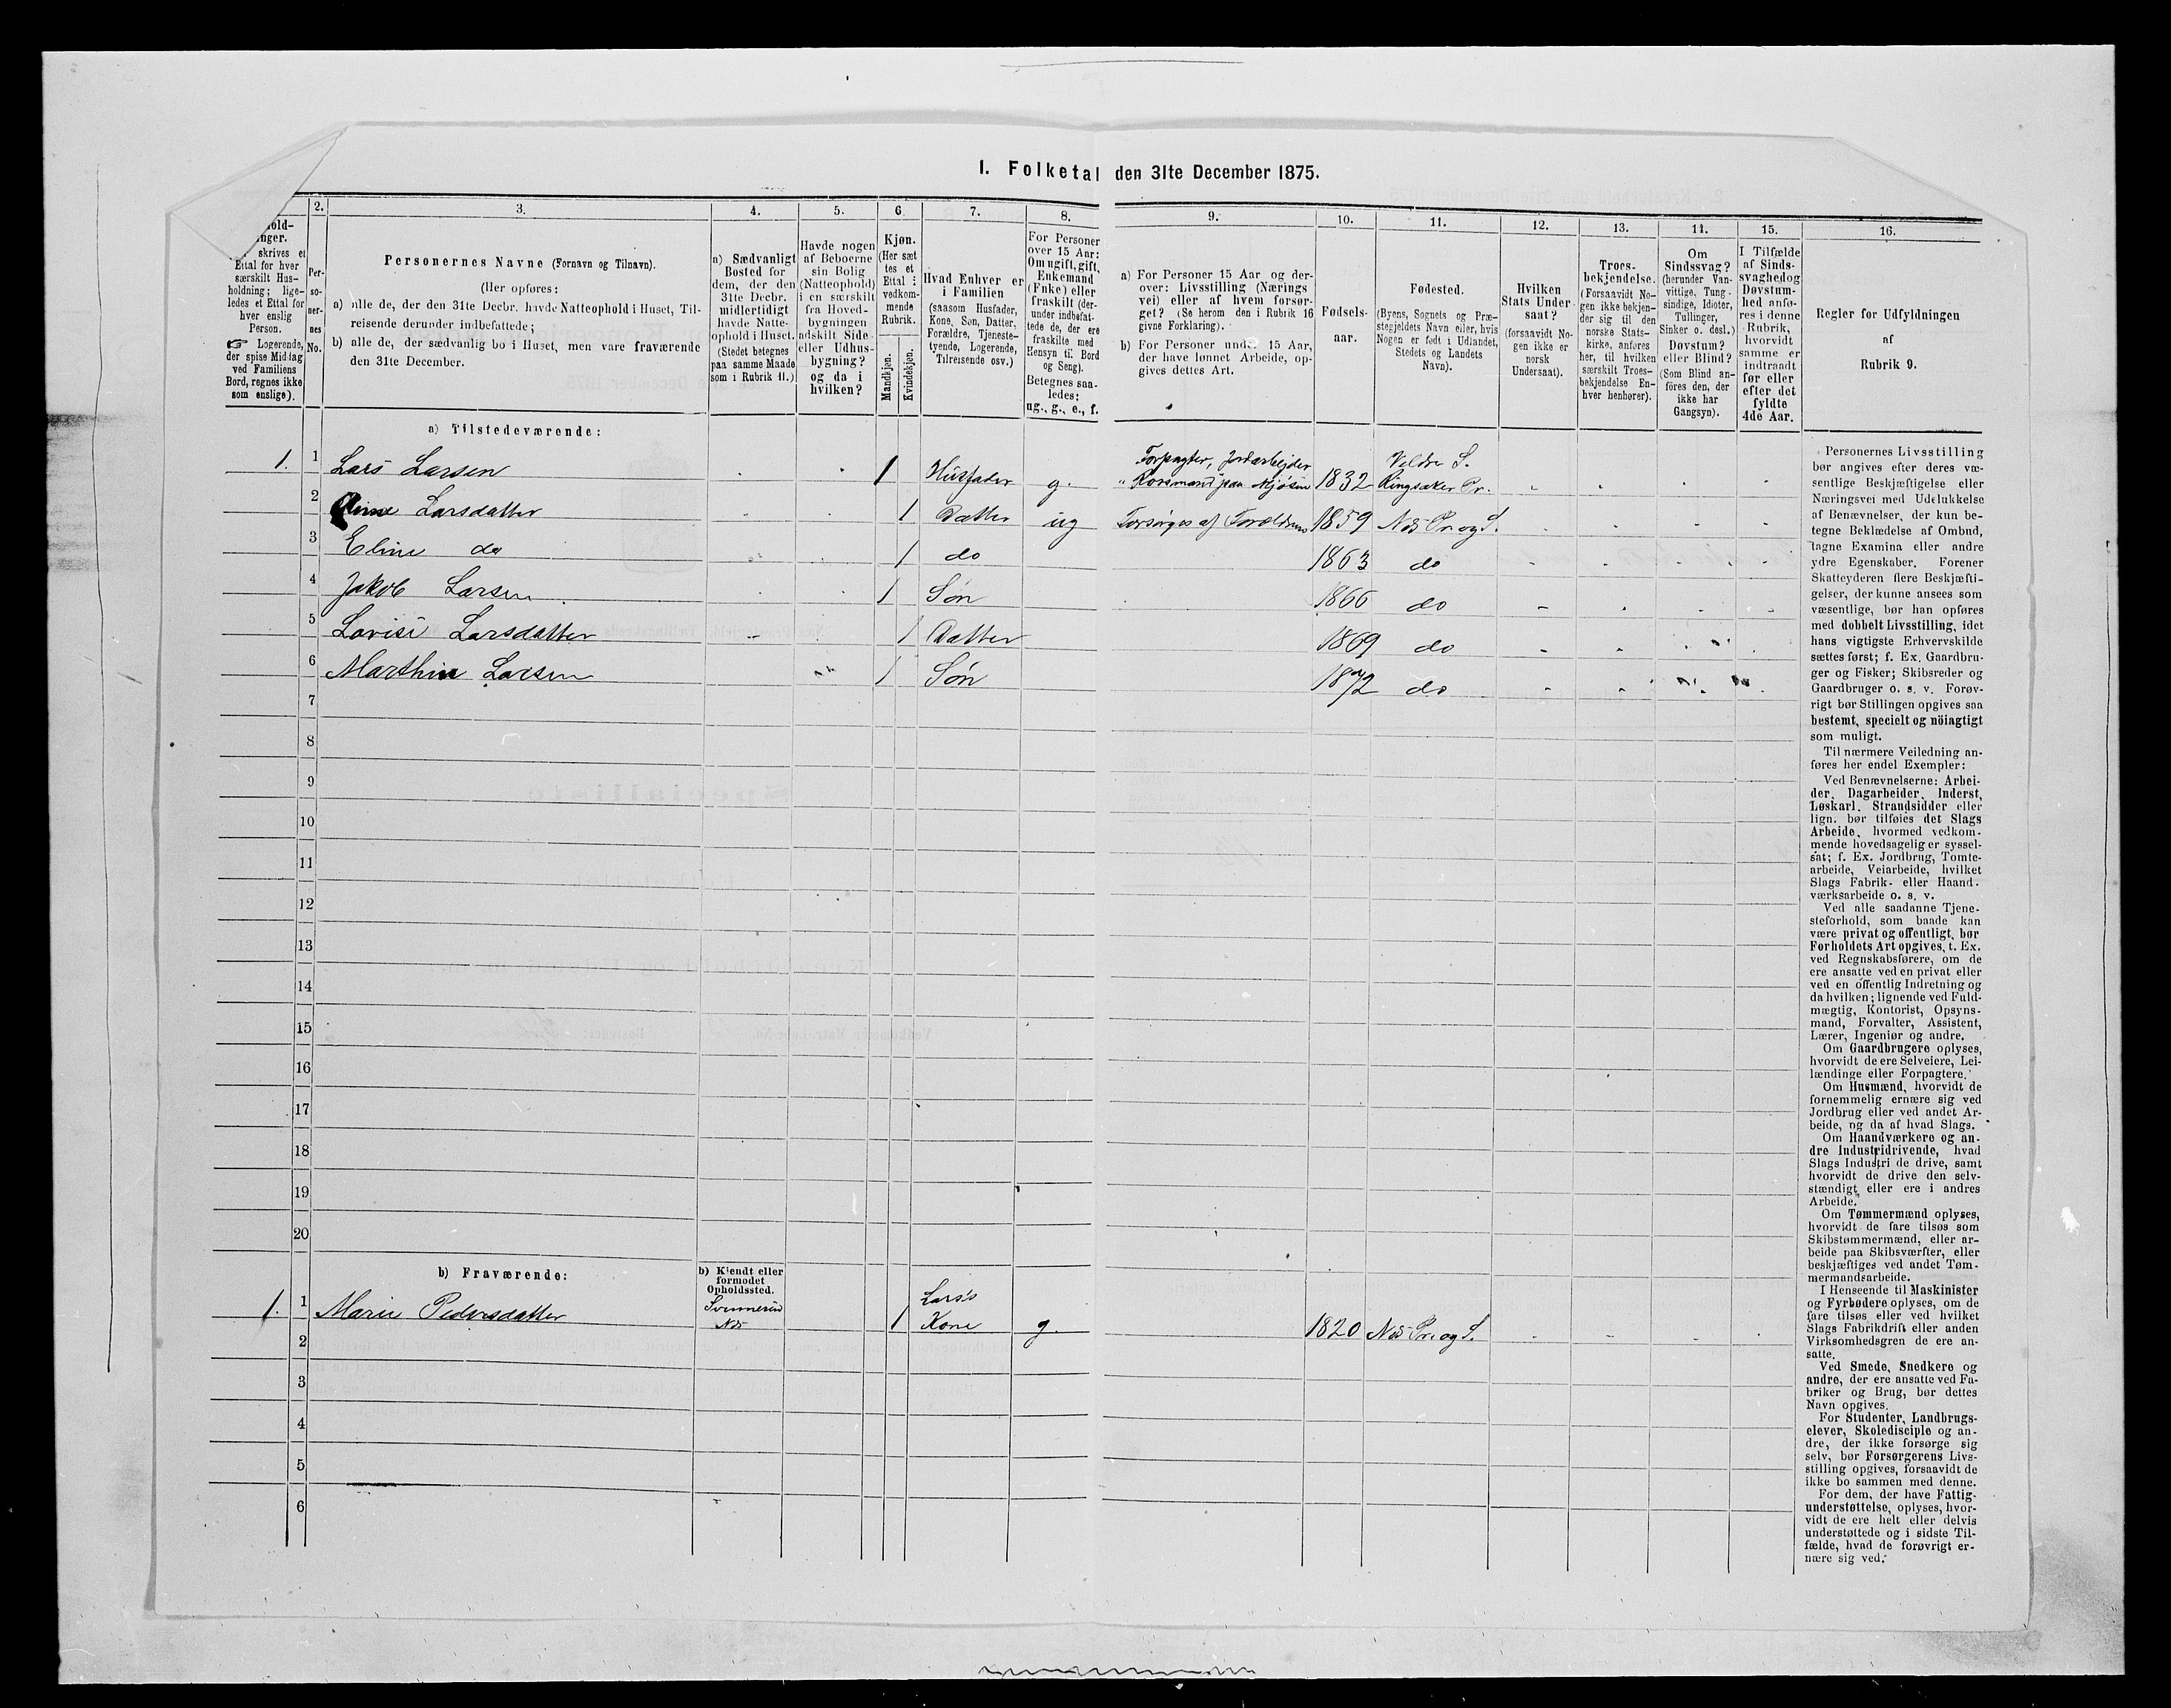 I. Folketal den 31te December 1875.
2. 3. 4. 5. 6. 7. 8. 9. 10. 11. 12. 13. 14. 15. 16.
skrives et
Ettal for hver
særskilt Hus-
holdning; lige-
ledes et Ettal for
hver enslig
Person.
☞ Logerende,
der spise Middag
ved Familiens
Bord, regnes ikke
som enslige).
Per-
so-
ner-
nes
No.
Personernes Navne (Fornavn og Tilnavn).
(Her opføres:
a) alle de, der den 31te Decbr. havde Natteophold i Huset, Til-
reisende derunder indbefattede;
b) alle de, der sædvanlig bo i Huset, men vare fraværende
den 31te December.
a) Sædvanligt
Bosted for
dem, der den
31te Decbr.
midlertidigt
havde Natte-
ophold i Huset.
(Stedet betegnes
paa samme Maade
som i Rubrik 11.)
Havde nogen
af Beboerne
sin Bolig
(Natteophold)
i en særskilt
fra Hoved-
bygningen
adskilt Side-
eller Udhus-
bygning?
og da i
hvilken?
Kjøn.
(Her sæt
tes et
Ettal i
vedkom-
mende
Rubrik.
Mandkjøn.
Kvindekjøn.
Hvad Enhver er
i Familien
(saasom Husfader,
Kone, Søn, Datter,
Forældre, Tjeneste-
tyende, Logerende,
Tilreisende osv.)
For Personer
over 15 Aar:
Om ugift, gift,
Enkemand
(Enke) eller
fraskilt (der-
under indbefat-
tede de, der ere
fraskilte med
Hensyn til Bord
og Seng).
Betegnes saa-
ledes:
ug., g., e., f.
a) For Personer 15 Aar og der-
over: Livsstilling (Nærings
vei) eller af hvem forsør-
get? (Se herom den i Rubrik 16
givne Forklaring).
b) For Personer under 15 Aar,
der have lønnet Arbeide, op-
gives dettes Art.
Fødsels-
aar.
Fødested.
(Byens, Sognets og Præ-
stegjeldets Navn eller, hvis
Nogen er født i Udlandet,
Stedets og Landets
Navn).
Hvilken
Stats Under-
saat?
(forsaavidt No-
gen ikke er
norsk
Undersaat).
Troes-
bekjendelse.
(Forsaavidt No-
gen ikke bekjen-
der sig til den
norske Stats-
kirke, anføres
her, til hvilken
særskilt Troes-
bekjendelse En-
hver henhører).
Om
Sindssvag?
(herunder Van-
vittige, Tung-
sindige, Idioter,
Tullinger,
Sinker o. desl.)
Døvstum?
eller Blind?
(Som Blind an-
føres den, der
ikke har
Gangsyn).
I Tilfælde
af Sinds-
svaghed og
Døvstum-
hed anfø-
res i denne
Rubrik,
hvorvidt
samme er
indtraadt
før eller
efter det
fyldte
4de Aar.
Regler for Udfyldningen
af
Rubrik 9.
a) Tilstedeværende:
1. 1 Lars Larsen 1 Husfader g. Forpagter, Jordarbejder 1832 Veldre S.
Ringsaker Pr.
2 Larsdatter 1 Datter ug Forsørges af Forældrene 1859 Næs Pr. og S.
3 Eline do 1 do 1863 do
4 Jakob Larsen 1 Søn 1866 do
5 Lovise Larsdatter 1 Datter 1869 do
6 Marthin Larsen 1 Søn 1872 do
7
8
9
10
11
12
13
14
15
16
17
18
19
20
b) Fraværende:
b) Kjendt eller
formodet
Opholdssted.
1. 1 Marie Pedersdatter Næs 1 Lars's
Kone g. 1820 Næs Pr. og S.
2
3
4
5
6
Personernes Livsstilling
bør angives efter deres væ-
sentlige Beskjæftigelse eller
Næringsvei med Udelukkelse
af Benævnelser, der kun be-
tegne Beklædelse af Ombud,
tagne Examina eller andre
ydre Egenskaber. Forener
Skatteyderen flere Beskjæfti-
gelser, der kunne ansees som
væsentlige, bør han opføres
med dobbelt Livsstilling, idet
hans vigtigste Erhvervskilde
sættes først; f. Ex. Gaardbru-
ger og Fisker; Skibsreder og
Gaardbruger o. s. v. Forøv-
rigt bør Stillingen opgives saa
bestemt, specielt og nöiagtigt
som muligt.
Til nærmere Veiledning an-
føres her endel Exempler:
Ved Benævnelserne: Arbei-
der, Dagarbeider, Inderst,
Løskarl, Strandsidder eller
lign. bør tilføies det Slags
Arbeide, hvormed vedkom-
mende hovedsagelig er syssel-
sat; f. Ex. Jordbrug, Tomte-
arbeide, Veiarbeide, hvilket
Slags Fabrik- eller Haand-
værksarbeide o. s. v.
Ved alle saadanne Tjene-
steforhold, som baade kan
være privat og offentligt, bør
Forholdets Art opgives, t. Ex.
ved Regnskabsførere, om de
ere ansatte ved en privat eller
ved en offentlig Indretning og
da hvilken; lignende ved Fuld-
mægtig, Kontorist, Opsyns-
mand, Forvalter, Assistent,
Lærer, Ingeniør og andre.
Om Gaardbrugere oplyses,
hvorvidt de ere Selveiere, Lei-
lændinge eller Forpagtere.
Om Husmænd, hvorvidt de
fornemmelig ernære sig ved
Jordbrug eller ved andet Ar-
beide, og da af hvad Slags.
Om Haandværkere og an-
dre Industridrivende, hvad
Slags Industri de drive, samt
hvorvidt de drive den selv-
stændigt eller ere i andres
Arbeide.
Om Tømmermænd oplyses,
hvorvidt de fare tilsøs som
Skibstømmermænd, eller ar-
beide paa Skibsværfter, eller
beskjæftiges ved andet Tøm-
mermandsarbeide.
I Henseende til Maskinister
og Fyrbødere oplyses, om de
fare tilsøs eller ved hvilket
Slags Fabrikdrift eller anden
Virksomhedsgren de ere an-
satte.
Ved Smede, Snedkere og
andre, der ere ansatte ved Fa-
briker og Brug, bør dettes
Navn opgives.
For Studenter, Landbrugs-
elever, Skoledisciple og an-
dre, der ikke forsørge sig
selv, bør Forsørgerens Livs-
stilling opgives, forsaavidt de
ikke bo sammen med denne.
For dem, der have Fattig-
understøttelse, oplyses, hvor-
vidt de ere helt eller delvis
understøttede og i sidste Til-
fælde, hvad de forøvrigt er-
nære sig ved.